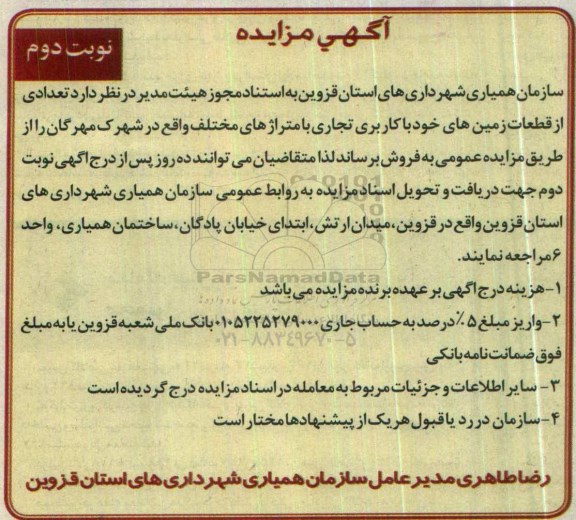 آگهي مزایده
نوبت دوم
سازمان همیاری شهرداری های استان قزوین به استناد مجوز هیئت مدیر در نظر دارد تعدادی
از قطعات زمین های خود با کاربری تجاری با متراژهای مختلف واقع در شهرک مهرگان را از
طریق مزایده عمومی به فروش برساند لذا متقاضیان می توانند ده روز پس از درج اگهی نوبت
دوم جهت دریافت و تحویل اسناد مزایده به روابط عمومی سازمان همیاری شهرداری های
استان قزوین واقع در قزوین، میدان ارتش، ابتدای خیابان پادگان، ساختمان همیاری، واحد
۶ مراجعه نمایند.
ParsNamadData
۱-هزینه درج اگهی بر عهده برنده مزایده می باشد
۲-واریز مبلغ ۵٪ درصد به حساب جاری ۰۱۰۵۲۲۵۲۷۹۰۰۰ بانک ملی شعبه قزوین یا به مبلغ
۰۲۱-۸۸۳۴۹۶۷۰-۵
فوق ضمانت نامه بانکی
۳- سایر اطلاعات و جزئیات مربوط به معامله در اسناد مزایده درج گردیده است
۴-سازمان در رد یا قبول هر یک از پیشنهادها مختار است
رضا طاهری مدیر عامل سازمان همیاری شهرداری های استان قزوین